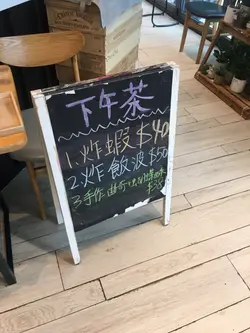 下午茶
1. 炸蝦 $40
2. 炸飯波 $50
3. 手作曲奇